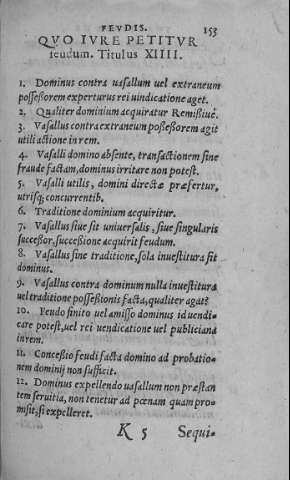 FEVDIS. 153
QVO IVRE PETITVR
feudum. Titulus XIIII.
1. Dominus contra uasallum uel extraneum
possessorem experturus rei uindicatione aget.
2. Qualiter dominium acquiratur Remissiuè.
3. Vasallus contra extraneum possessorem agit
utili actione in rem.
4. Vasalli domino absente, transactionem sine
fraude factam, dominus irritare non potest.
5. Vasalli utilis, domini directæ præfertur,
utrisq; concurrentib.
6. Traditione dominium acquiritur.
7. Vasallus siue sit uniuersalis, siue singularis
successor, successione acquirit feudum.
8. Vasallus sine traditione, sola inuestitura fit
dominus.
9. Vasallus contra dominum nulla inuestitura
uel traditione possessionis facta, qualiter agat?
10. Feudo finito uel amisso dominus id uendi-
care potest, uel rei uendicatione uel publiciana
in rem.
11. Concessio feudi facta domino ad probatio-
nem dominij non sufficit.
12. Dominus expellendo uasallum non præstan
tem seruitia, non tenetur ad pœnam quam pro-
misit, si expelleret.
K 5 Sequi-